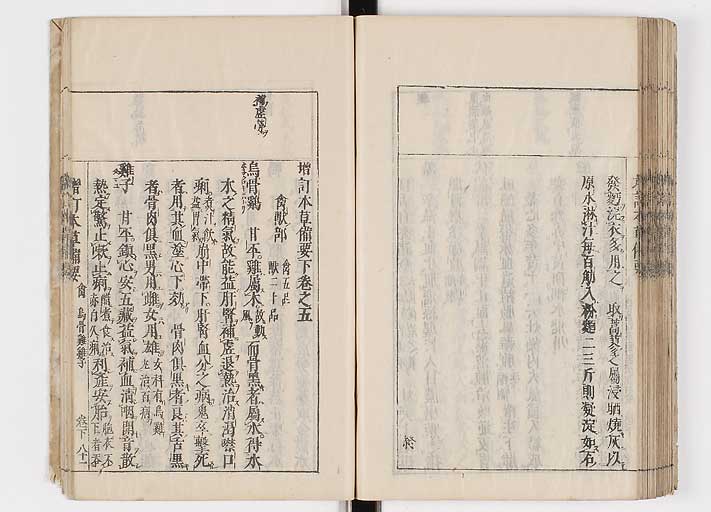 發麪浣衣多用之 取蒿蓼之屬浸晒燒灰以
原水淋汁每百觔入粉麪二三斤則凝淀如石
補虛勞
增訂本草備要下卷之五
禽獸部 禽五品
獸二十品
烏骨雞 甘平雞屬木故動風而骨黑者屬水得水
木之精氣故能益肝腎補虛退熱治消渴噤口
痢煮汁飲益胃氣崩中帶下肝腎血分之病鬼卒擊死
者用其血塗心下效 骨肉俱黑者良其舌黑
者骨肉俱黑男用雌女用雄女科有烏雞丸治百病
雞子 甘平鎮心安五藏益氣補血清咽開音散
熱定驚止嗽止痢醋煮食治赤白久痢利產安胎胞衣不下者吞
增訂本草備要 禽 烏骨雞雞子 卷下 八十一